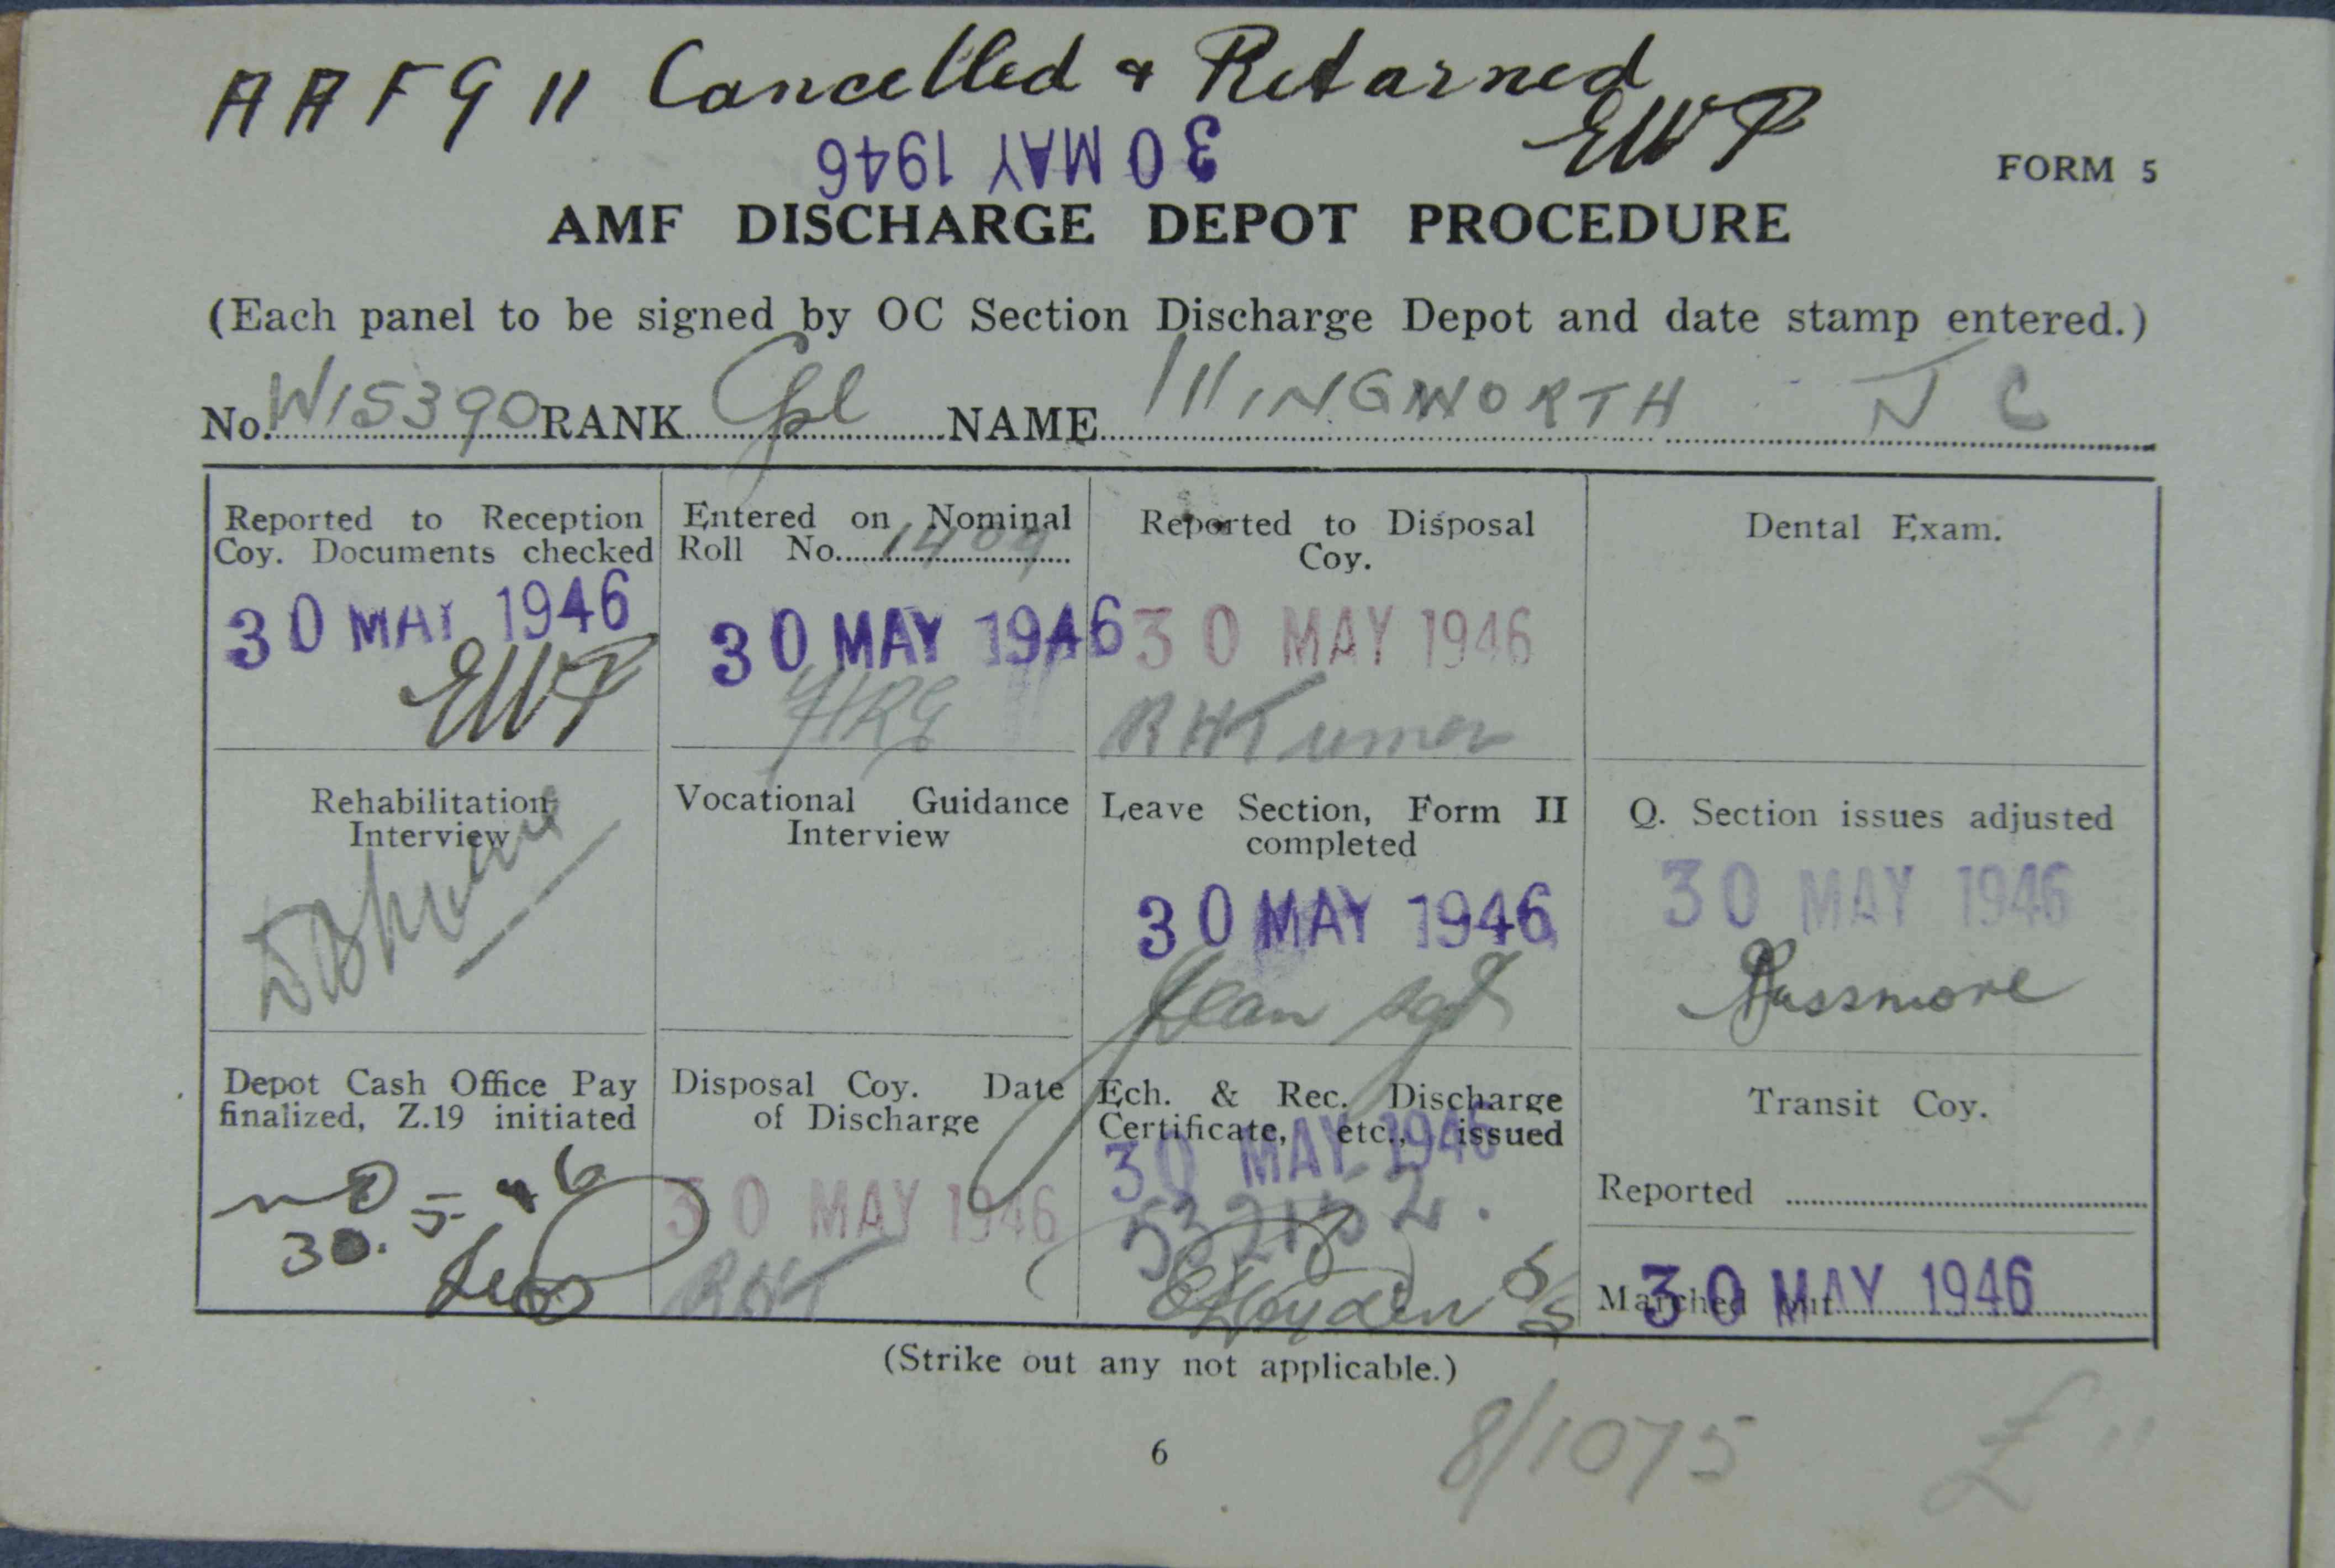 AAF G 11 Cancelled & Returned
EWP
30 MAY 1946
FORM 5
AMF DISCHARGE DEPOT PROCEDURE
(Each panel to be signed by OC Section Discharge Depot and date stamp entered.)
No. W15390 RANK Cpl NAME IllINGWORTH J C
Reported to Reception
Coy. Documents checked
30 MAY 1946
EWP
Entered on Nominal
Roll No. 1409
30 MAY 1946
Reported to Disposal
Coy.
30 MAY 1946
RHTurner
Dental Exam.
Rehabilitation
Interview
Vocational Guidance
Interview
Leave Section, Form II
completed
30 MAY 1946
Jean Sgt
Q. Section issues adjusted
30 MAY 1946
Passmore
Depot Cash Office Pay
finalized, Z.19 initiated
30.5.46
Disposal Coy. Date
of Discharge
30 MAY 1946
RHT
Ech. & Rec. Discharge
Certificate, etc., issued
30 MAY 1946
Hayden S/S
Transit Coy.
Reported
Marched out 30 MAY 1946
(Strike out any not applicable.)
6
8/1075
£